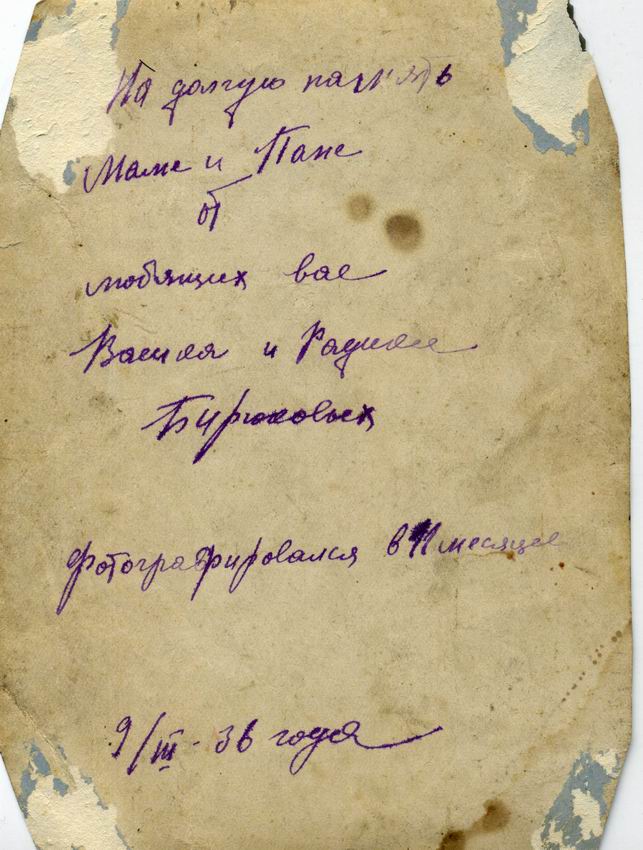 На долгую память
Маме и Папе
от
любящих вас
и
Бирюковых
фотографировался в 11 месяцев
9/III - 36 года